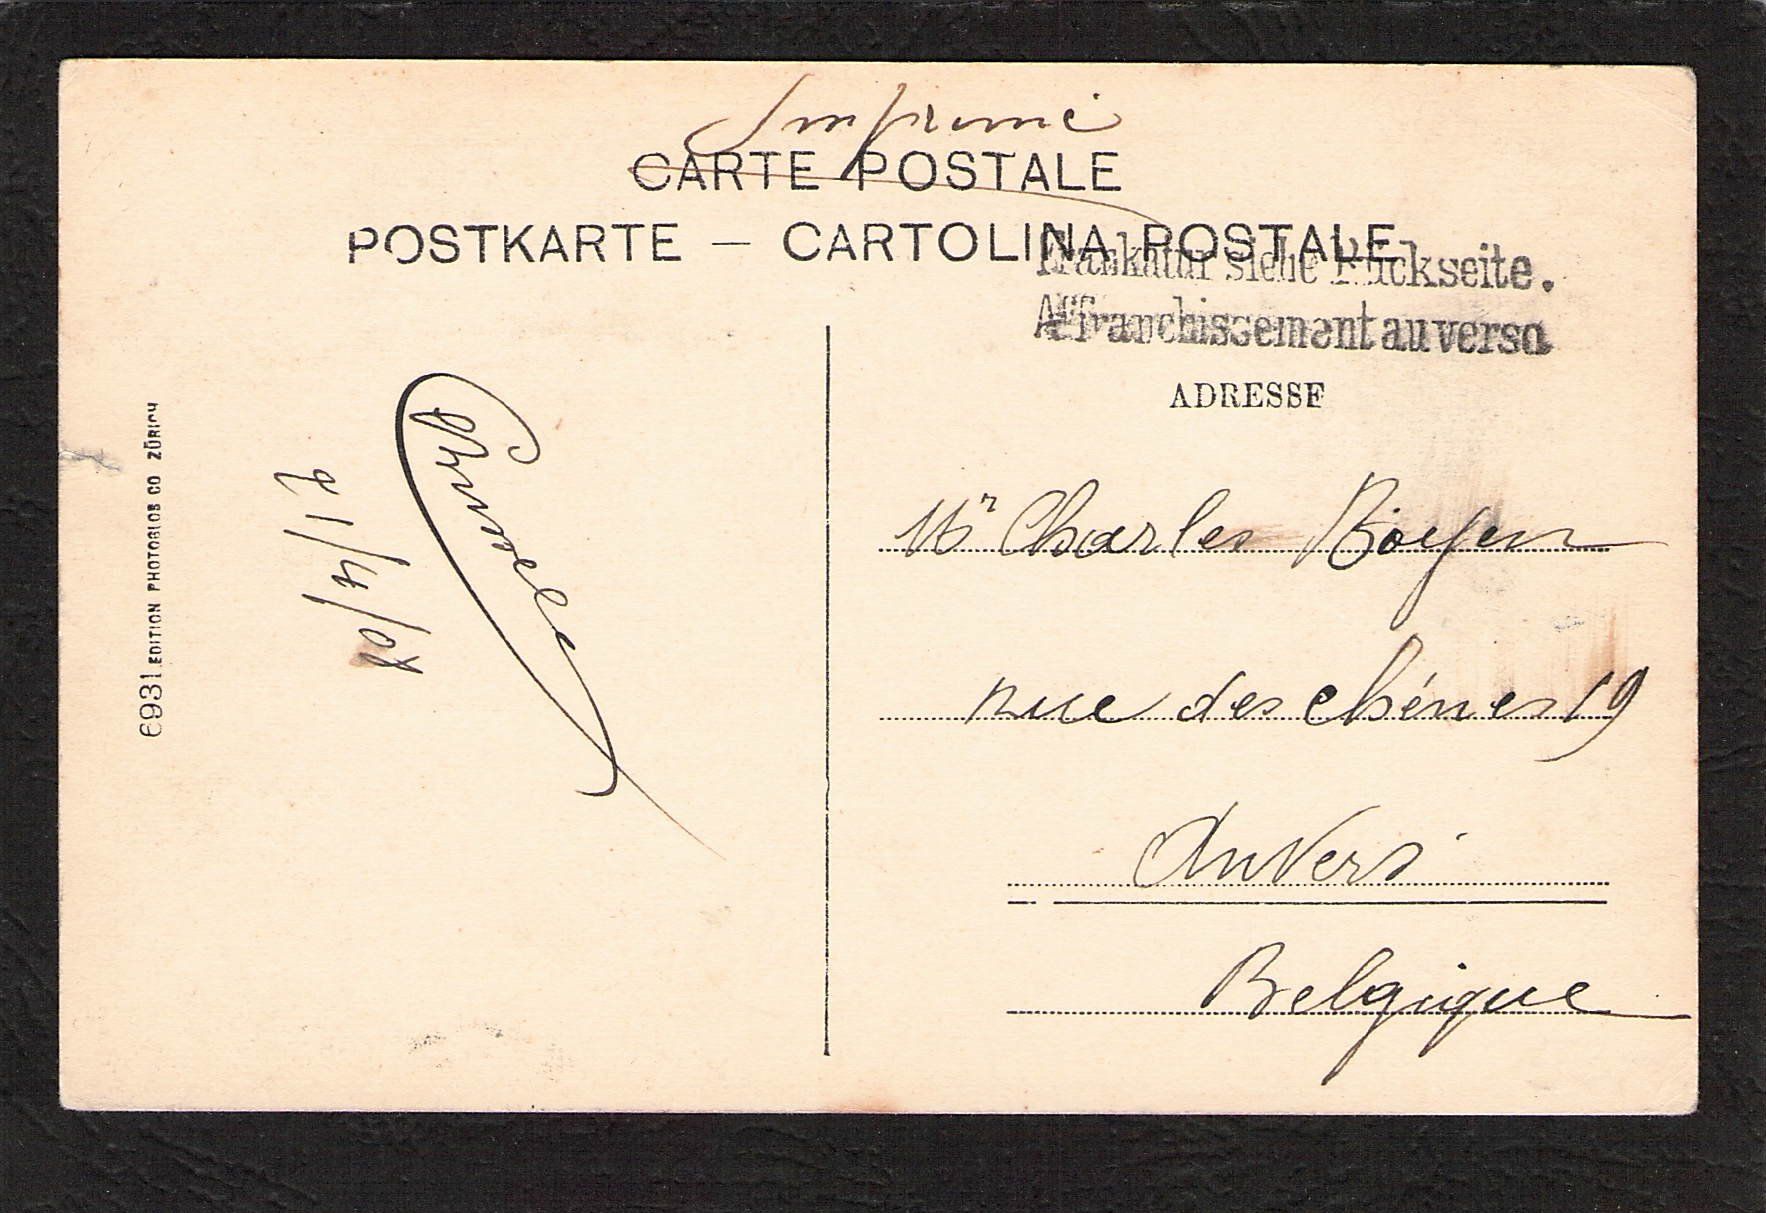 Imprimé
CARTE POSTALE
POSTKARTE — CARTOLINA POSTALE
Frankatur siehe Rückseite.
Affranchissement au verso
ADRESSE
Mr Charles Boeyen
rue des chênes 19
Anvers
Belgique
6931 EDITION PHOTOGLOB CO ZÜRICH